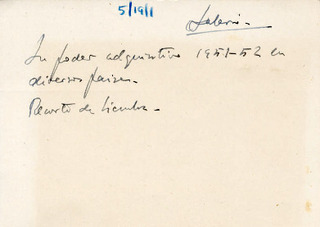 5/19/1
Salario.-
Su poder adquisitivo 1951-52 en
diversos países.-
Recorte de